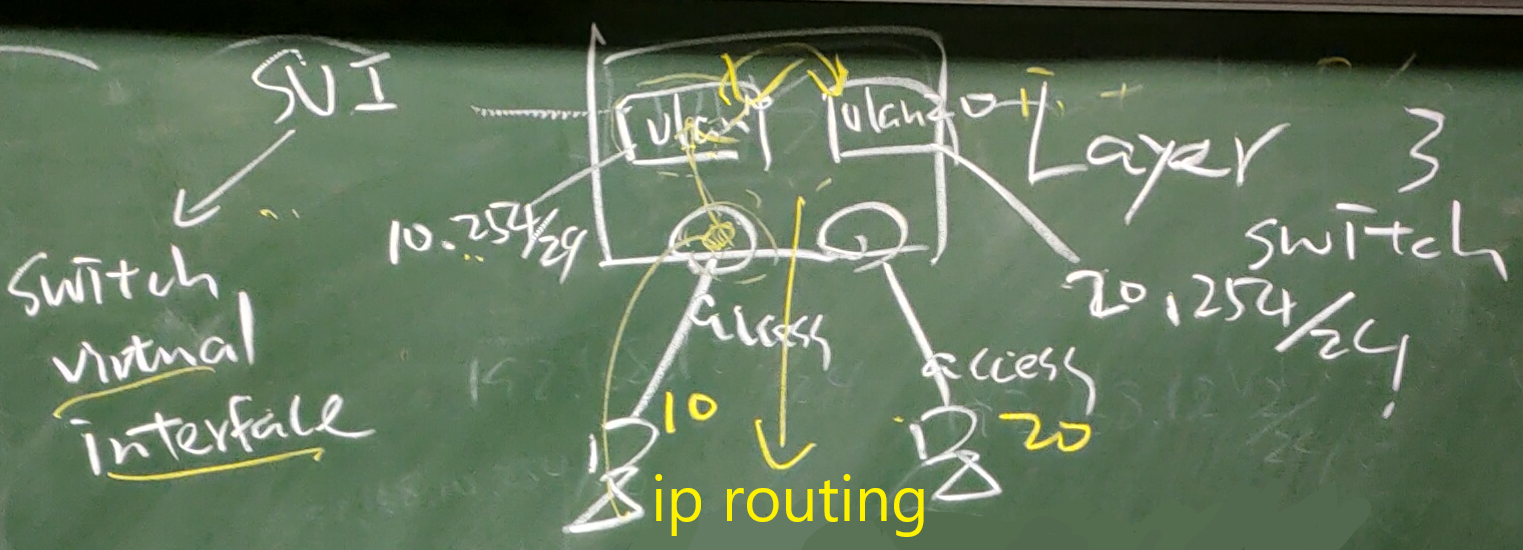 SVI
switch
virtual
interface
vlan
vlan20
Layer 3
switch
10.254/24
20.254/24
access
access
10
20
ip routing